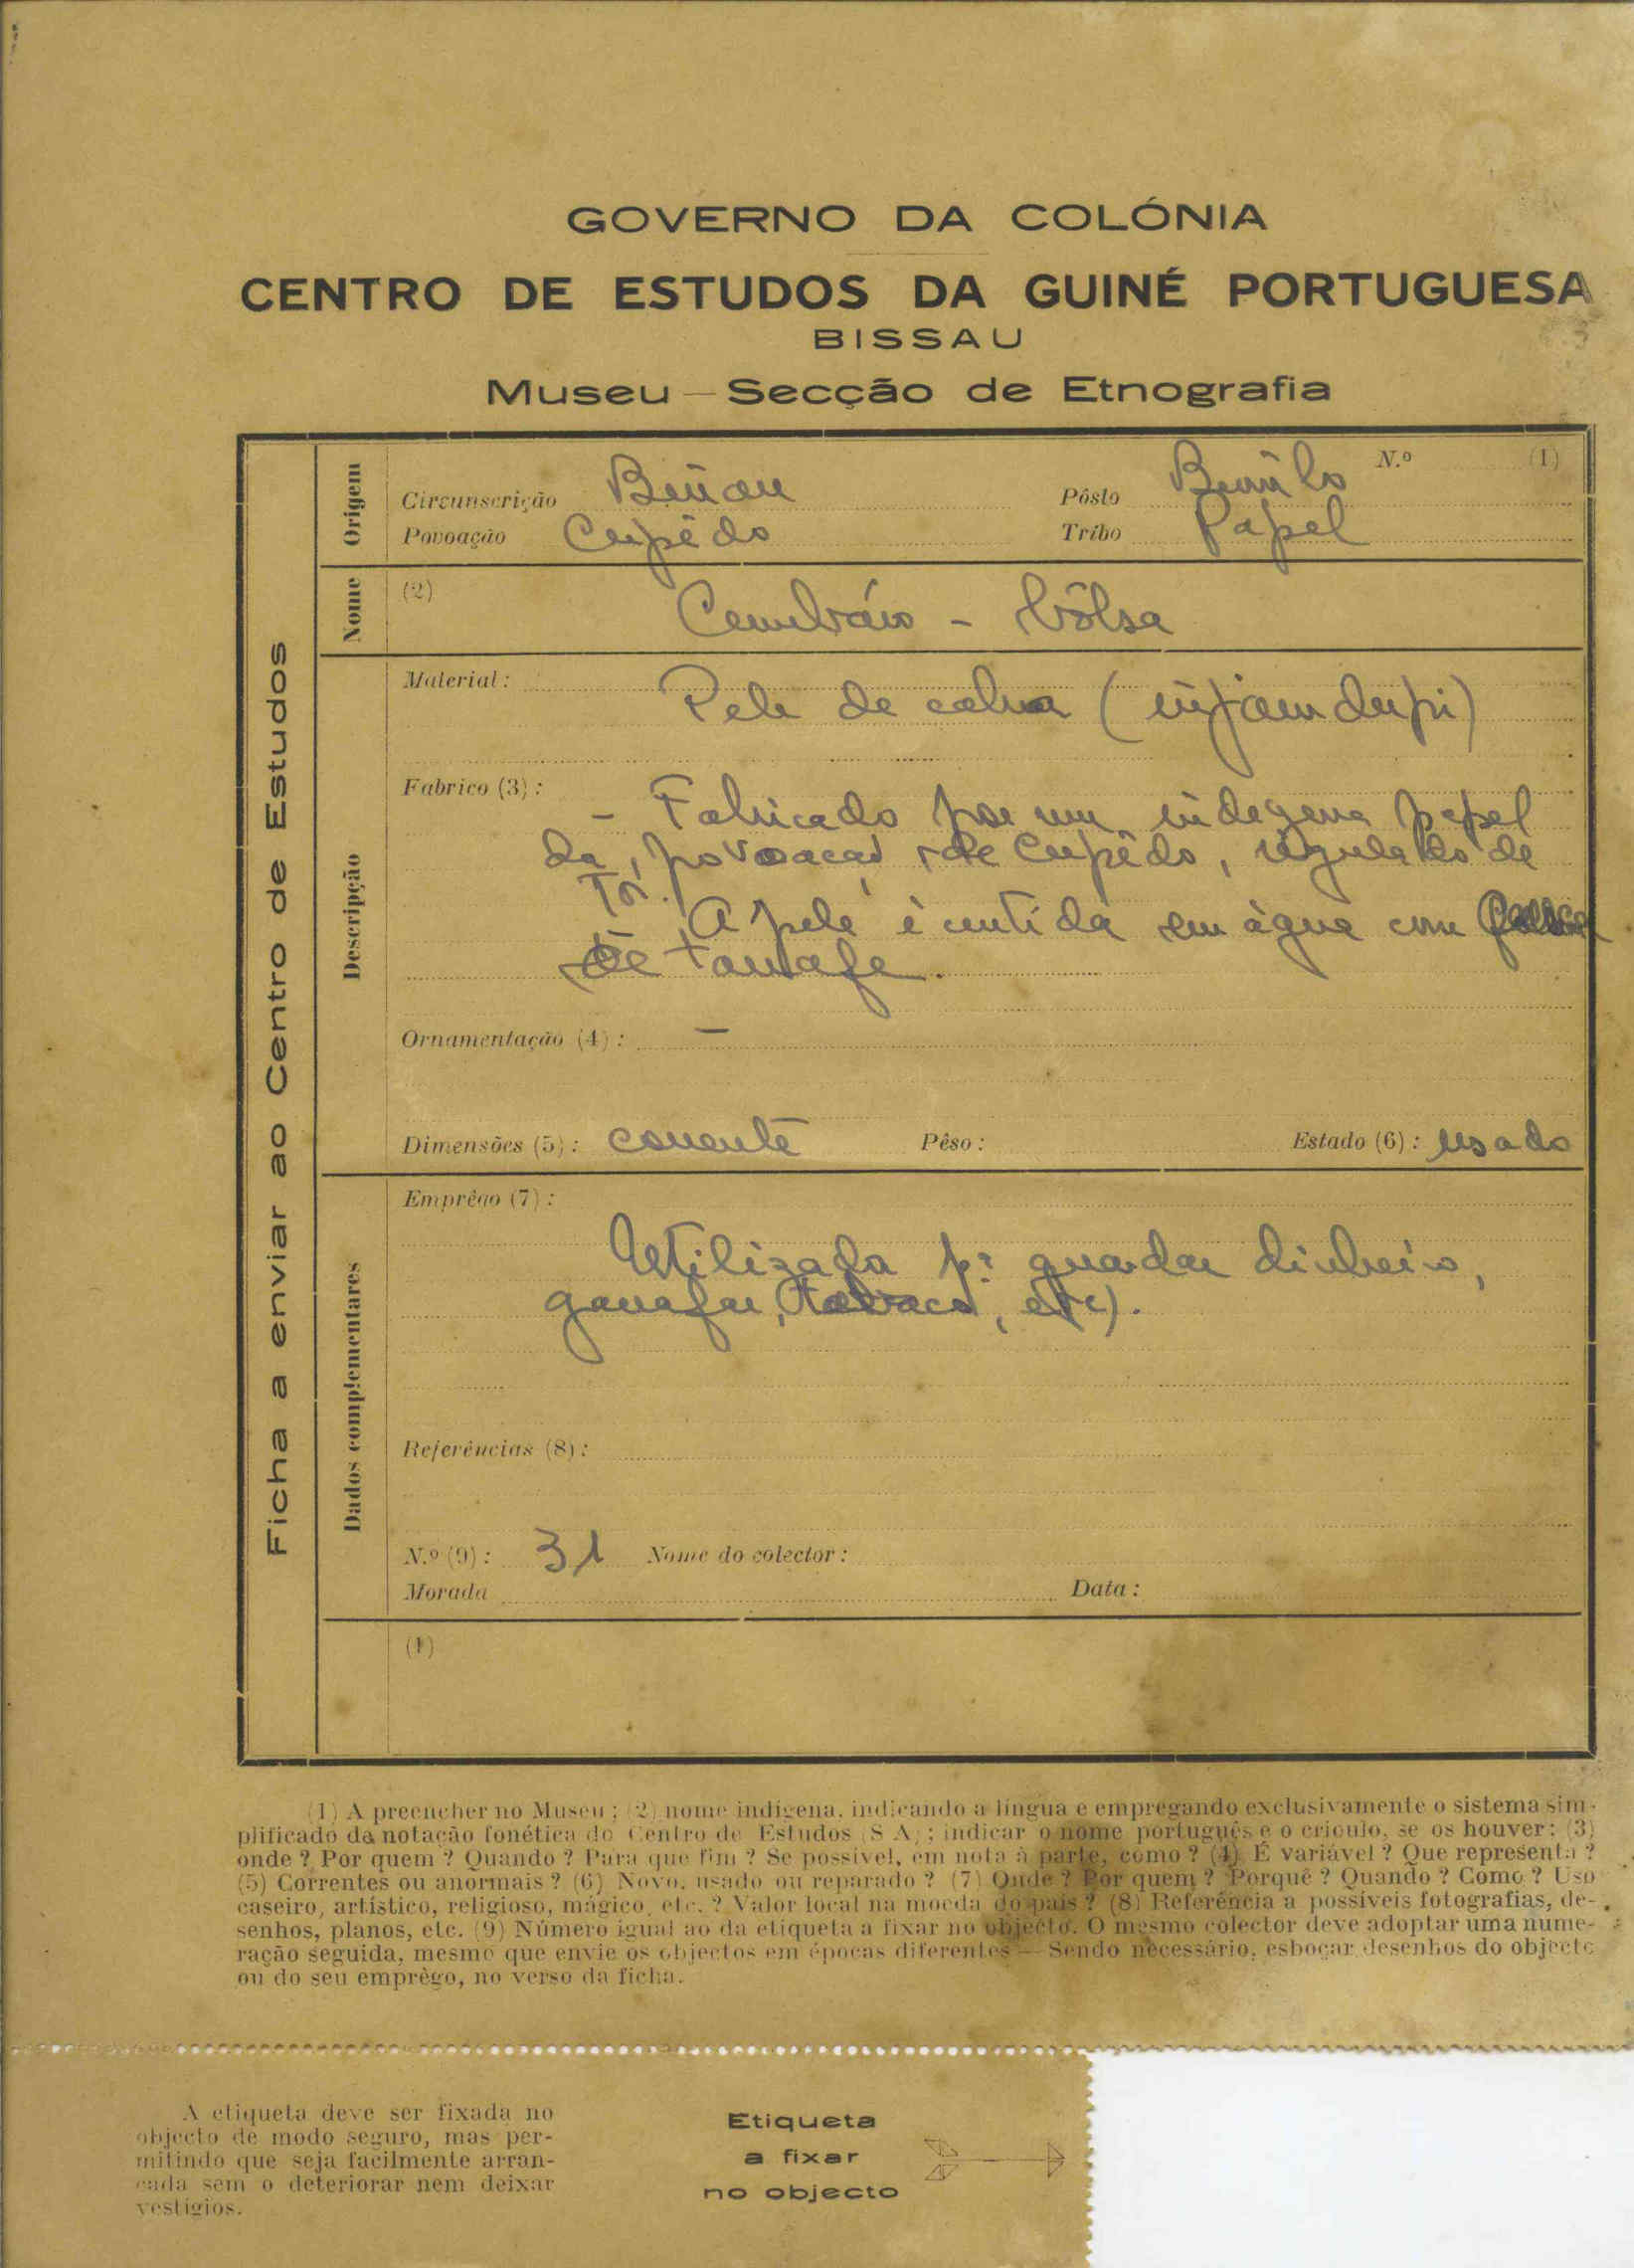 GOVERNO DA COLÓNIA
CENTRO DE ESTUDOS DA GUINÉ PORTUGUESA
BISSAU
Museu — Secção de Etnografia
Ficha a enviar ao Centro de Estudos
Origem
N.º (1)
Circunscrição Bissau Pôsto
Povoação Cupêdo Tribo Papel
Nome
(2)
bôlsa
Descripção
Material:
Pele de cabra (
Fabrico (3):
- Fabricado por um indegena papel
da povoação de Cupêdo, regulado de
Tôr.
A pele é curtida em água com
de tarrafe.
Ornamentação (4): —
Dimensões (5): corrente Pêso: Estado (6): usado
Dados complementares
Emprêgo (7):
Utilizada p.ª guardar dinheiro,
tabaco, etc).
Referências (8):
N.º (9): 31 Nome do colector:
Morada Data:
(1)
(1) A preencher no Museu; (2) nome indígena, indicando a língua e empregando exclusivamente o sistema sim-
plificado da notação fonética do Centro de Estudos (S A); indicar o nome português e o crioulo, se os houver; (3)
onde? Por quem? Quando? Para que fim? Se possível, em nota à parte, como? (4) É variável? Que representa?
(5) Correntes ou anormais? (6) Novo, usado ou reparado? (7) Onde? Por quem? Porquê? Quando? Como? Uso
caseiro, artístico, religioso, mágico, etc.? Valor local na moeda do país? (8) Referência a possíveis fotografias, de-
senhos, planos, etc. (9) Número igual ao da etiqueta a fixar no objecto. O mesmo colector deve adoptar uma nume-
ração seguida, mesmo que envie os objectos em épocas diferentes — Sendo necessário, esboçar desenhos do objecto
ou do seu emprêgo, no verso da ficha.
A etiqueta deve ser fixada no
objecto de modo seguro, mas per-
mitindo que seja facilmente arran-
cada sem o deteriorar nem deixar
vestígios.
Etiqueta
a fixar
no objecto